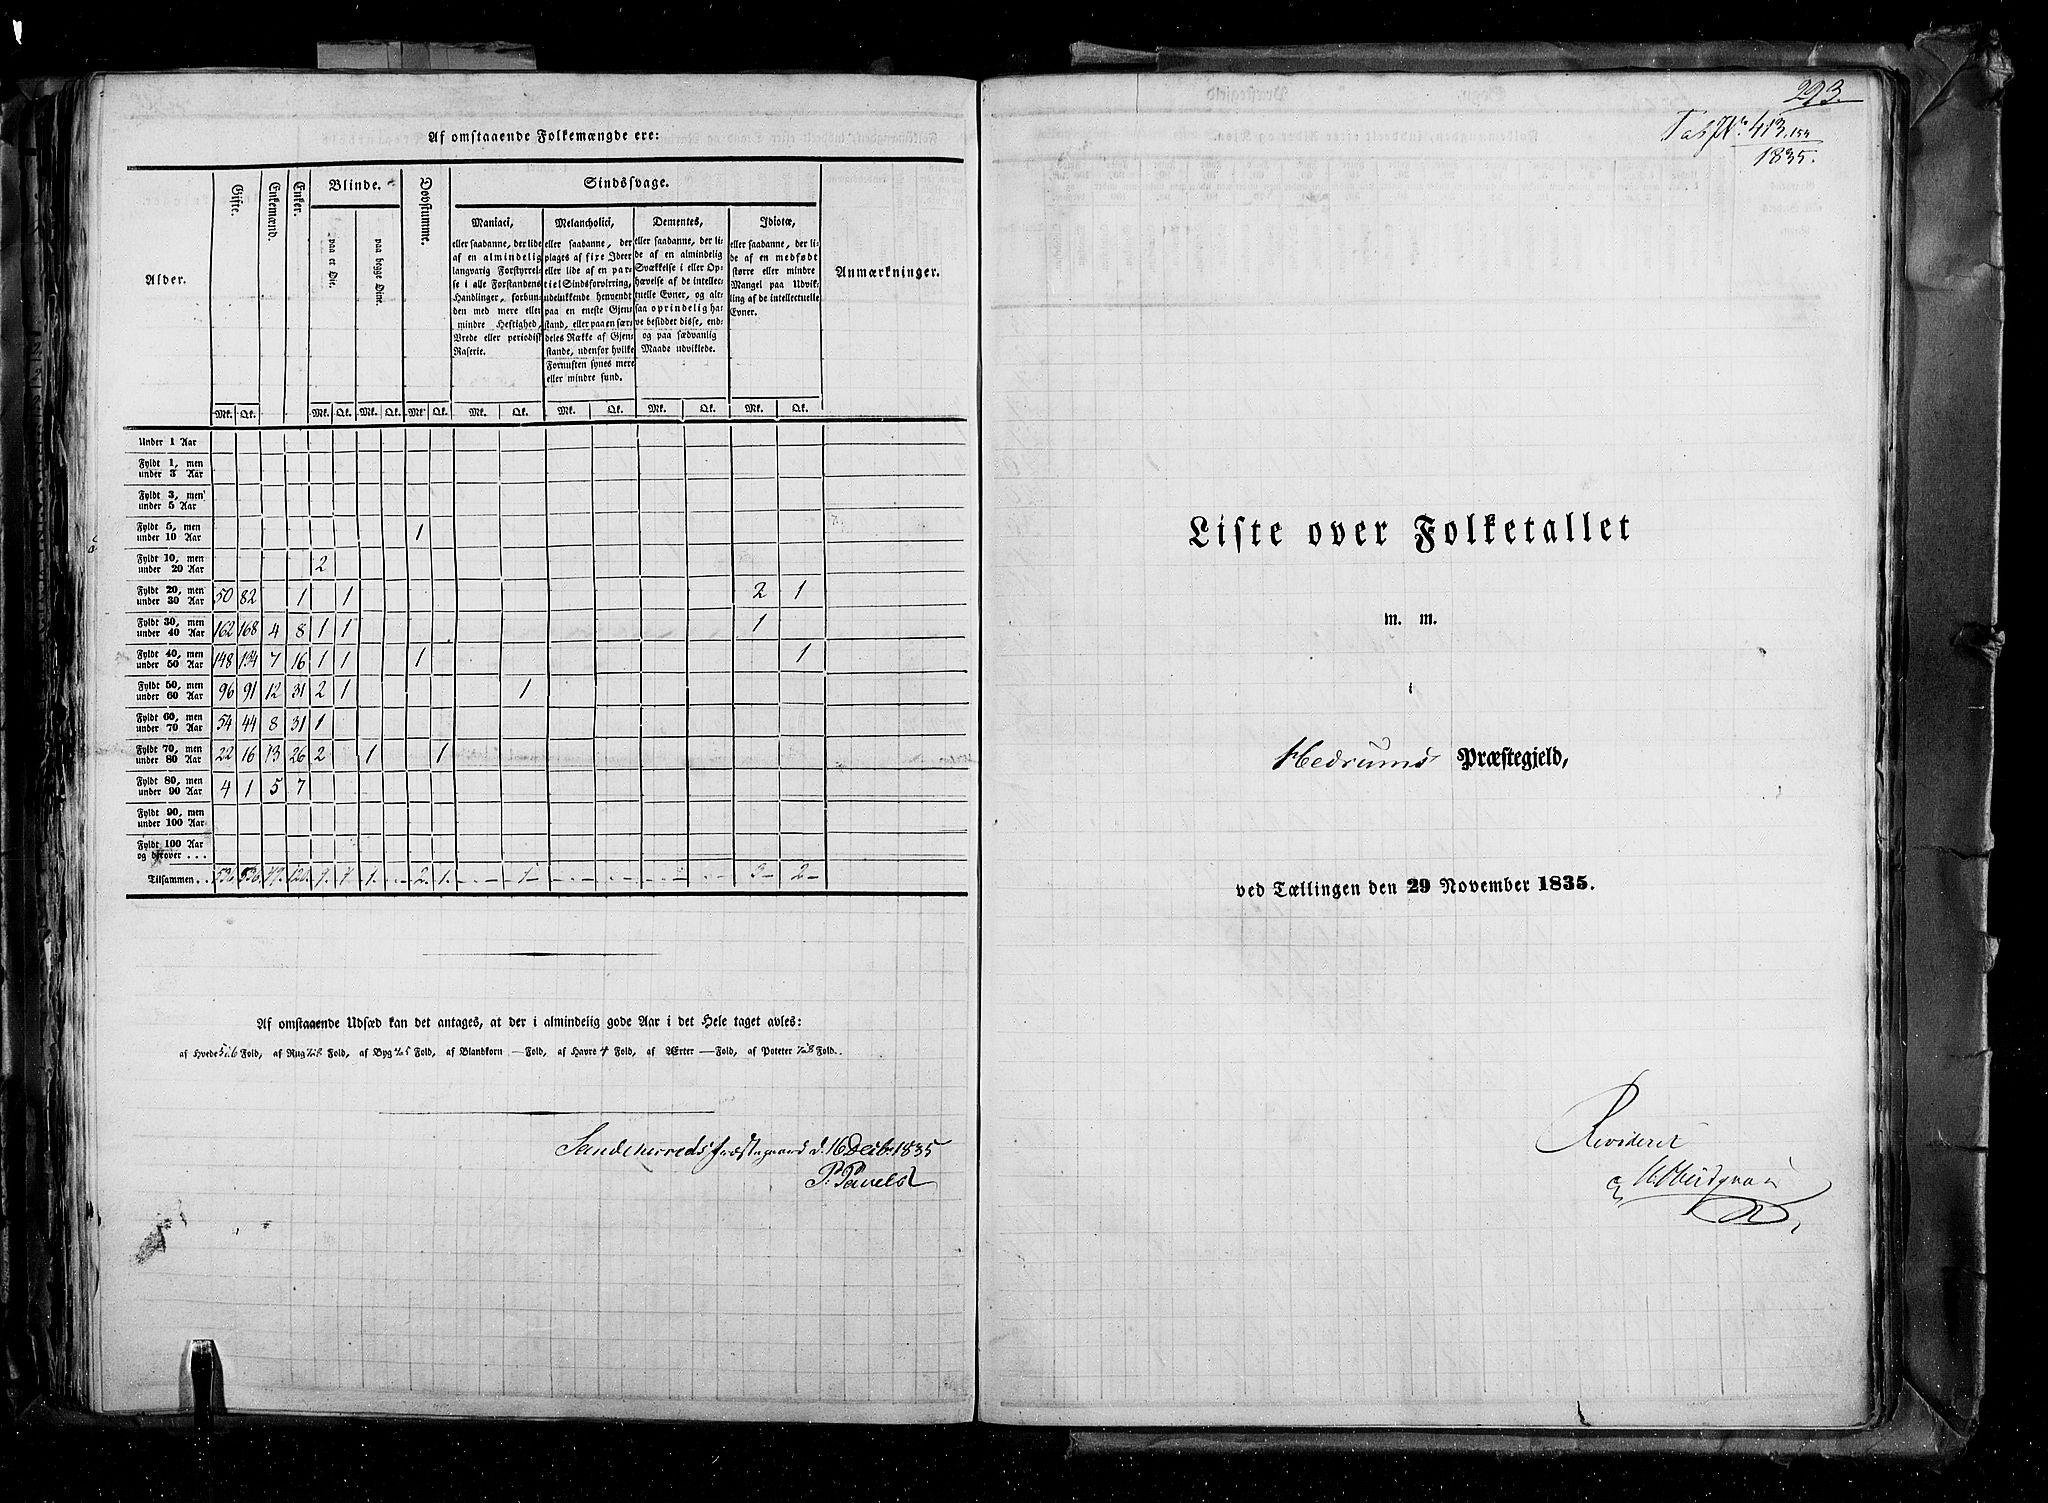 Af omstaaende Folkemængde ere:
Alder.
Gifte.
Enkemænd.
Enker.
Blinde.
paa et Øie.
paa begge Øine.
Døvstumme.
Sindssvage.
Maniaci,
eller saadanne, der lide
af en almindelig
langvarig Forstyrrel-
se i alle Forstandens
Handlinger, forbun-
den med mere eller
mindre Heftighed,
Vrede eller periodisk
Raserie.
Melancholici,
eller saadanne, der
plages af fixe Ideer
eller lide af en par-
tiel Sindsforvirring,
udelukkende henvendt
paa en eneste Gjen-
stand, eller paa en sær-
deles Række af Gjen-
stande, udenfor hvilke
Fornuften synes mere
eller mindre sund.
Dementes,
eller saadanne, der li-
de af en almindelig
Svækkelse i eller Op-
hævelse af de intellec-
tuelle Evner, og alt-
saa oprindelig ha-
ve besiddet disse, end-
og paa sædvanlig
Maade udviklede.
Idiotæ,
eller saadanne, der li-
de af en medfødt
større eller mindre
Mangel paa Udvik-
ling af de intellectuelle
Evner.
Anmærkninger.
Mk. Qk. Mk. Qk. Mk. Qk. Mk. Qk. Mk. Qk. Mk. Qk. Mk. Qk. Mk. Qk.
Under 1 Aar
Fyldt 1, men
under 3 Aar
Fyldt 3, men
under 5 Aar
Fyldt 5, men
under 10 Aar 1
Fyldt 10, men
under 20 Aar 2
Fyldt 20, men
under 30 Aar 50 82 1 1 2 1
Fyldt 30, men
under 40 Aar 162 168 4 8 1 1 1
Fyldt 40, men
under 50 Aar 148 134 7 16 1 1 1 1
Fyldt 50, men
under 60 Aar 96 91 12 31 2 1 1
Fyldt 60, men
under 70 Aar 54 44 8 31 1
Fyldt 70, men
under 80 Aar 22 16 13 26 2 1 1
Fyldt 80, men
under 90 Aar 4 1 5 7
Fyldt 90, men
under 100 Aar
Fyldt 100 Aar
og derover . . .
Tilsammen . . 536. 536. 49. 120. 1. 2. 1. 1 3 2
Af omstaaende Udsæd kan det antages, at der i almindelig gode Aar i det Hele taget avles:
af Hvede 5 à 6 Fold, af Rug Fold, af Byg Fold, af Blandkorn — Fold, af Havre 4 Fold, af Ærter — Fold, af Poteter Fold.
Sandeherreds Præstegaard d. 16 Decbr 1835
P. Pavels
293.
Tab. No 413.
1835.
Liste over Folketallet
m. m.
i
Hedrums Præstegjeld,
ved Tællingen den 29 November 1835.
Revideret